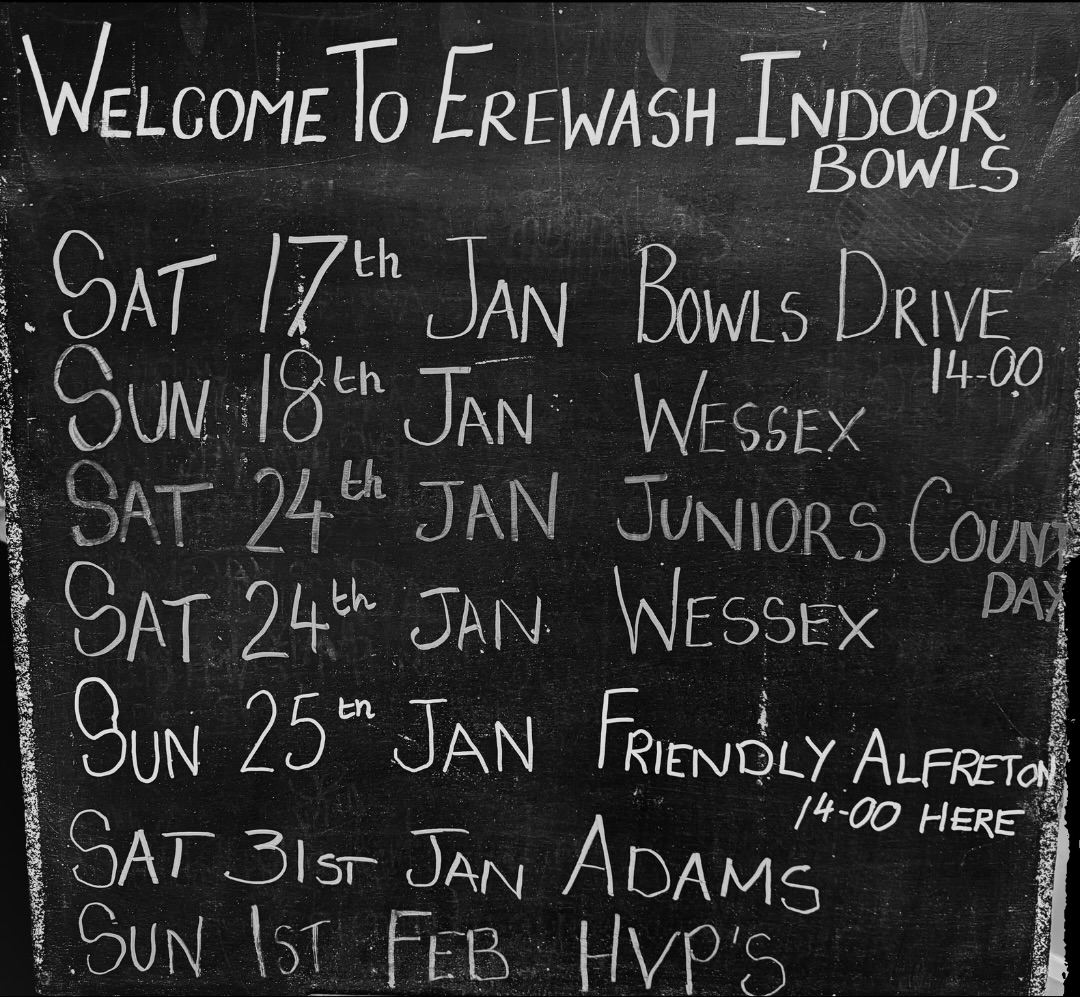 WELCOME TO EREWASH INDOOR
BOWLS
SAT 17th JAN BOWLS DRIVE
14-00
SUN 18th JAN WESSEX
SAT 24th JAN JUNIORS COUNTY
DAY
SAT 24th JAN WESSEX
SUN 25th JAN FRIENDLY ALFRETON
14-00 HERE
SAT 31ST JAN ADAMS
SUN 1ST FEB HVP'S